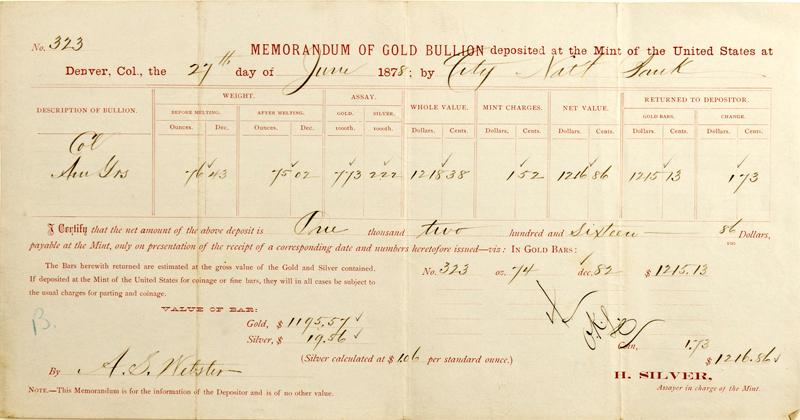 No. 323
MEMORANDUM OF GOLD BULLION deposited at the Mint of the United States at
Denver, Col., the 27th day of June 1878; by City Natl Bank
DESCRIPTION OF BULLION. WEIGHT. ASSAY. WHOLE VALUE. MINT CHARGES. NET VALUE. RETURNED TO DEPOSITOR.
BEFORE MELTING. AFTER MELTING. GOLD. SILVER. GOLD BARS. CHANGE.
Ounces. Dec. Ounces. Dec. 1000th. 1000th. Dollars. Cents. Dollars. Cents. Dollars. Cents. Dollars. Cents. Dollars. Cents.
Col
76 43 75 02 773 222 1218 38 1 52 1216 86 1215 13 1 73
I Certify that the net amount of the above deposit is One thousand two hundred and Sixteen 86/100 Dollars,
payable at the Mint, only on presentation of the receipt of a corresponding date and numbers heretofore issued—viz: IN GOLD BARS:
The Bars herewith returned are estimated at the gross value of the Gold and Silver contained.
If deposited at the Mint of the United States for coinage or fine bars, they will in all cases be subject to
the usual charges for parting and coinage.
No. 323 oz. 74 dec. 82 $ 1215.13
VALUE OF BAR:
B.
Gold, $ 1195.57
Silver, $ 19.56
O.K.
Coin, 1.73
(Silver calculated at $ 1.06 per standard ounce.)
$ 1216.86
By A. S. Webster
H. SILVER,
Assayer in charge of the Mint.
NOTE.—This Memorandum is for the information of the Depositor and is of no other value.